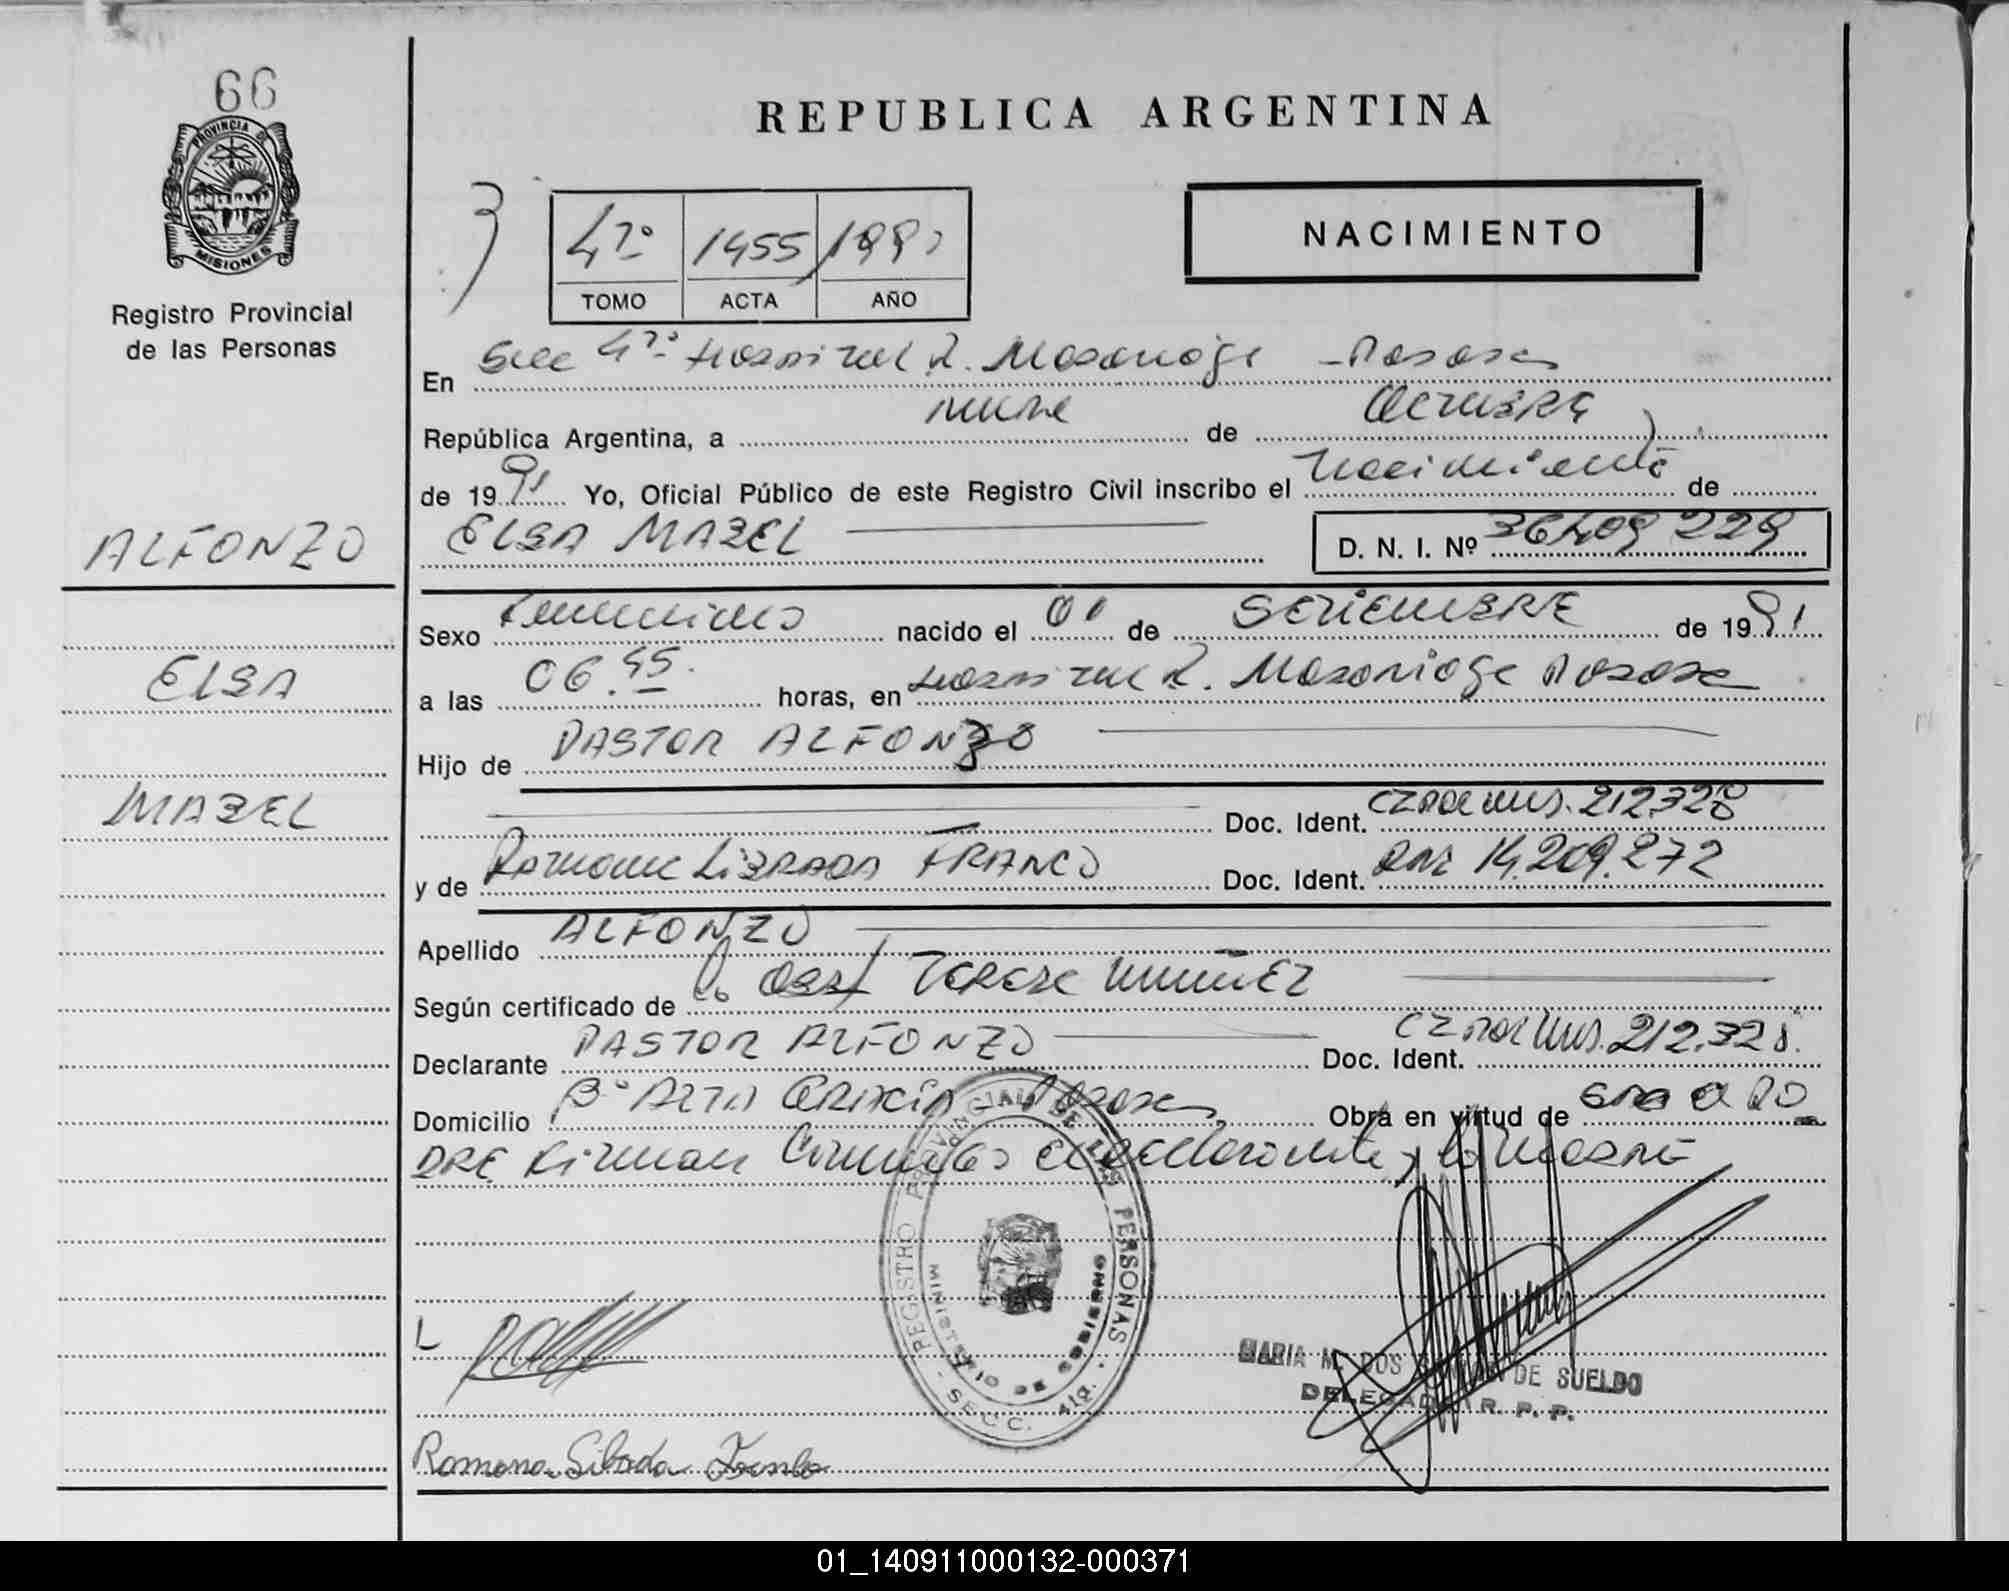 66
PROVINCIA DE
MISIONES
Registro Provincial
de las Personas
ALFONZO
ELSA
MABEL
REPUBLICA ARGENTINA
3
1455
TOMO ACTA AÑO
NACIMIENTO
En Secc 4ta Hospital R. Madariaga - Posadas
República Argentina, a nueve de OCTUBRE
de 1991 Yo, Oficial Público de este Registro Civil inscribo el nacimiento de
ELSA MABEL D. N. I. Nº 36.409.229
Sexo Femenino nacido el 01 de SETIEMBRE de 1991
a las 06.45 horas, en Hospital R. Madariaga Posadas
Hijo de PASTOR ALFONZO
Doc. Ident. 212.328
y de Ramona LIBRADA FRANCO Doc. Ident. DNI 14.209.272
Apellido ALFONZO
Según certificado de La Obst Teresa MUÑEZ
Declarante PASTOR ALFONZO Doc. Ident. 212.328.
Domicilio Bº ALTA Posadas Obra en virtud de
DRE Firman el declarante y la madre
REGISTRO PROVINCIAL DE LAS PERSONAS
MINISTERIO DE GOBIERNO
SECC. 4ta.
L
MARIA M. DOS SANTOS DE SUELDO
DELEGADA R. P. P.
Ramona Librada Franco
01_140911000132-000371